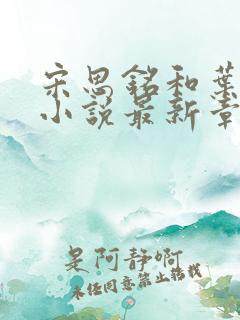 宋思铭和葉
小说最新章
是阿静啊
未经同意禁止转载